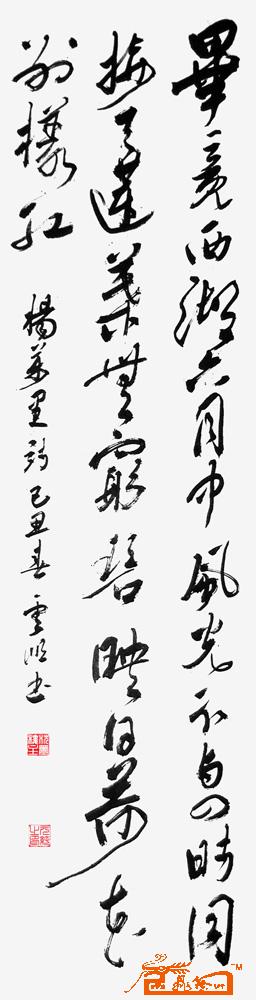 畢竟西湖六月中風光不与四時同
接天蓮葉無窮碧映日荷花
別樣紅
楊萬里詩 己丑春 雲 書